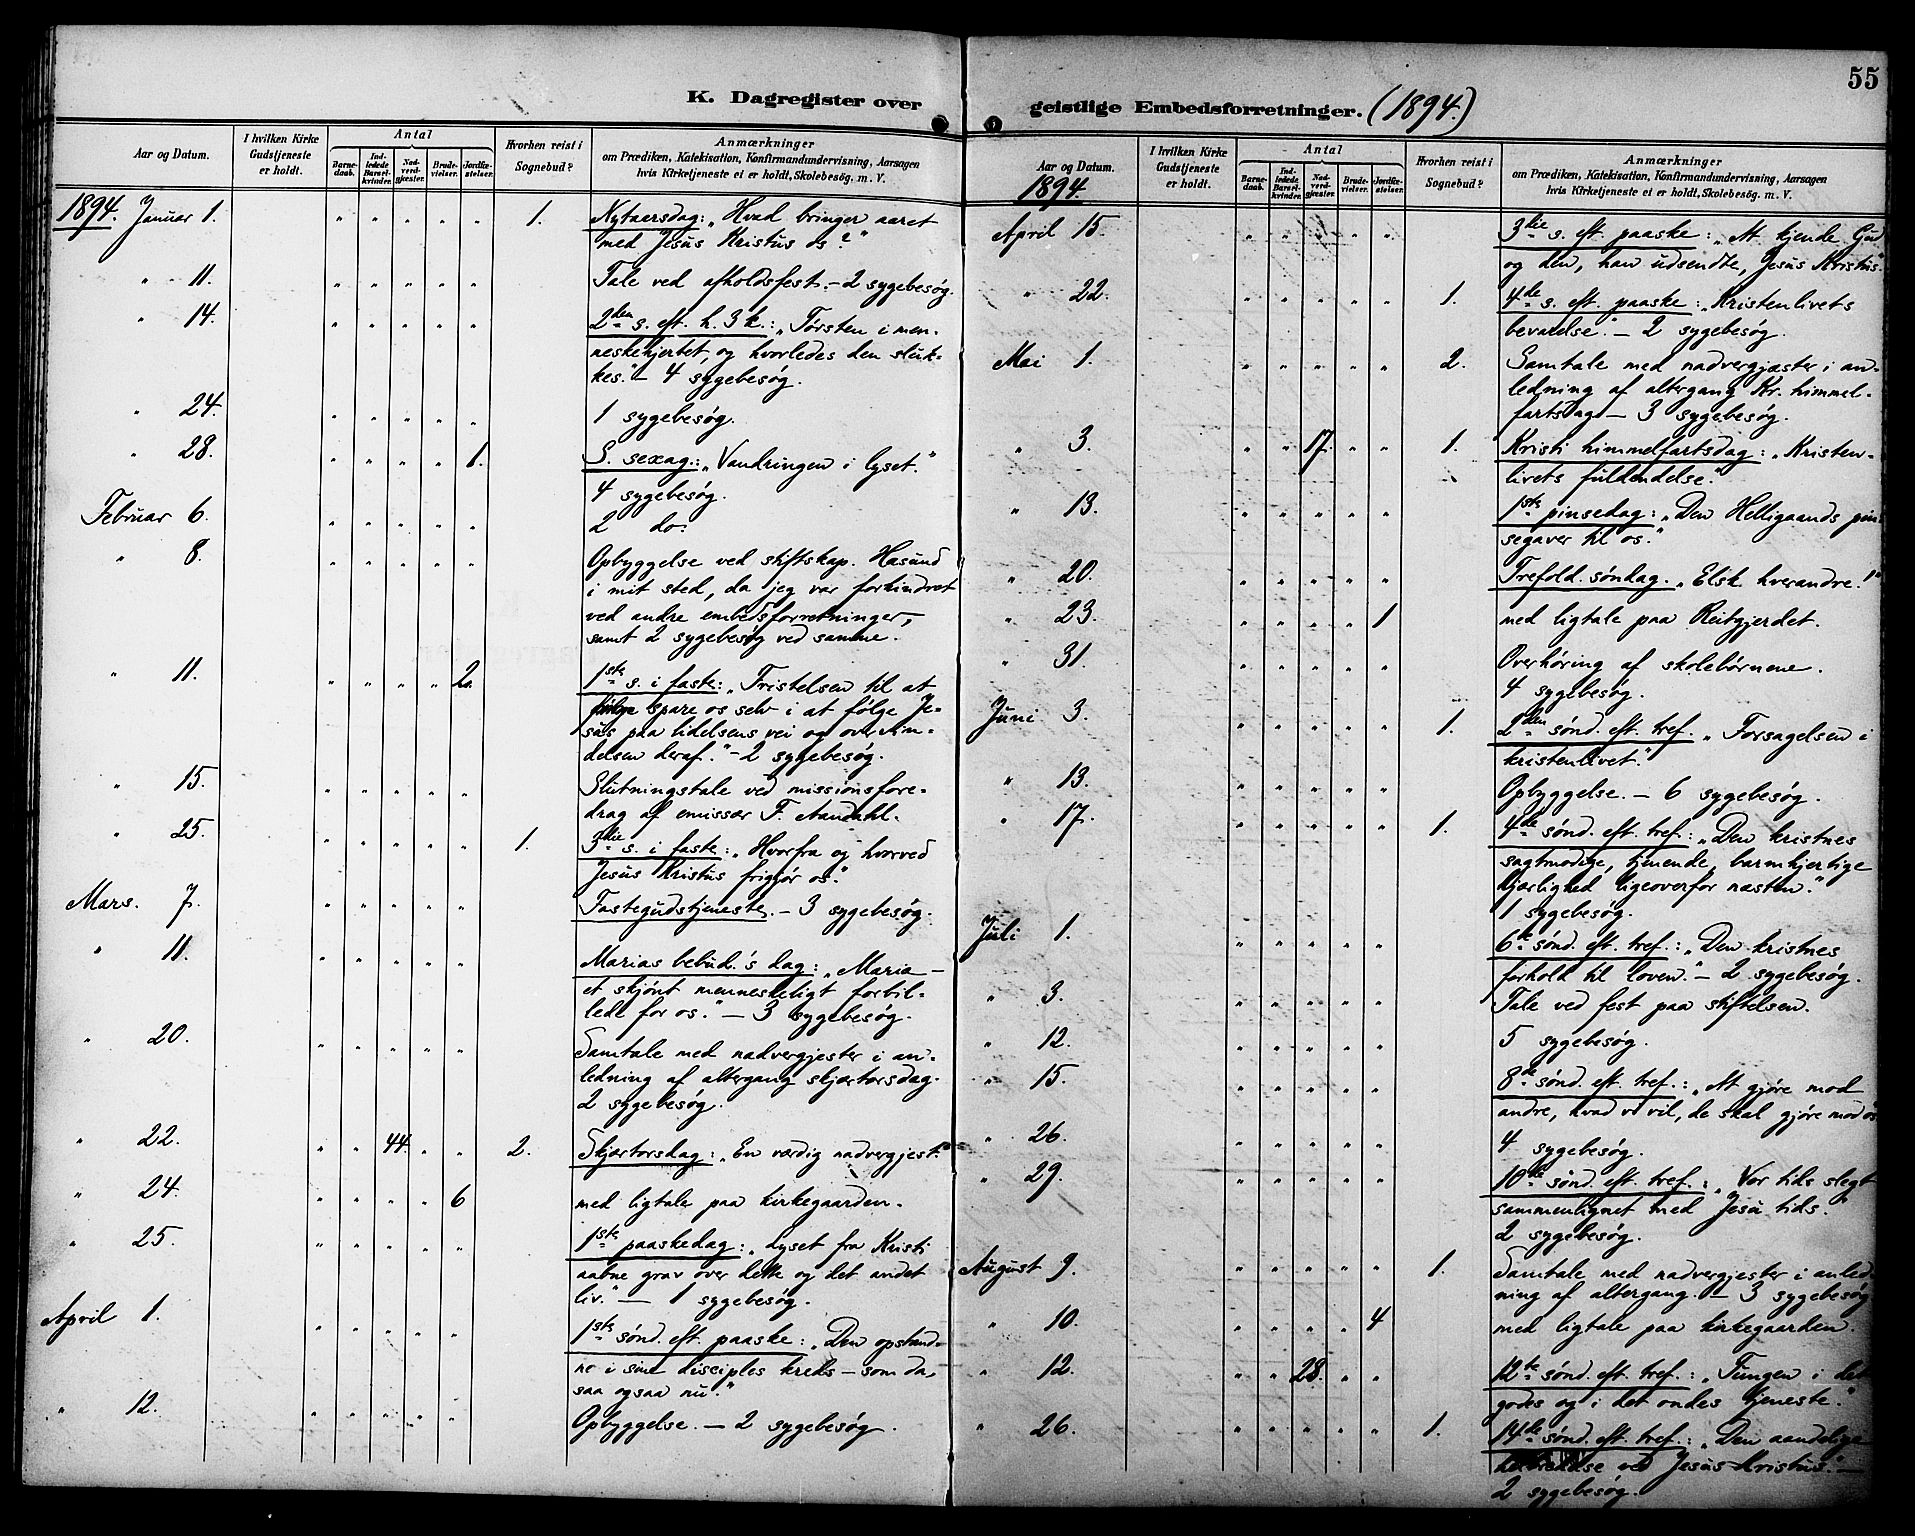 55
K. Dagregister over geistlige Embedsforretninger. (1894.)
Aar og Datum.
I hvilken Kirke Gudstjeneste er holdt.
Antal
Barne-daab.
Ind-ledede Barsel-kvinder.
Nad-verd-gjæster.
Brude-vielser.
Jordfæ-stelser.
Hvorhen reist i Sognebud?
Anmærkninger
om Prædiken, Katekisation, Konfirmandundervisning, Aarsagen
hvis Kirketjeneste ei er holdt, Skolebesøg. m. V.
1894. Januar 1. " " " " " 1. Nytaarsdag: „Hvad bringer aaret
med Jesus Kristus os?"
" 11. " " " " " Tale ved afholdsfest. – 2 sygebesøg.
" 14. " " " " " 2den s. eft. h. 3 k.: „Tørsten i men-
neskehjertet, og hvorledes den sluk-
kes." – 4 sygebesøg.
" 24. " " " " " 1 sygebesøg.
" 28. " " " " 1. S. sexag.: „Vandringen i lyset."
4 sygebesøg.
Februar 6. " " " " " 2 do:
" 8. " " " " " Opbyggelse ved stiftskap. Hasund
i mit sted, da jeg var forhindret
ved andre embedsforretninger,
samt 2 sygebesøg ved samme.
" 11. " " " " 2. 1ste s. i faste: „Fristelsen til at
spare os selv i at følge Je-
sus paa lidelsens vei og overvin-
delsen deraf." – 2 sygebesøg.
" 15. " " " " " Slutningstale ved missionsfore-
drag af emissær F. Aandahl.
" 25. " " " " " 1. 3die s. i faste: „Hvorfra og hvorved
Jesus Kristus frigjør os."
Mars. 7. " " " " " Fastegudstjeneste. – 3 sygebesøg.
" 11. " " " " " Marias bebud.'s dag: „Maria –
et skjønt menneskeligt forbil-
lede for os." – 3 sygebesøg.
" 20. " " " " " Samtale med nadvergjester i an-
ledning af altergang skjærtorsdag.
2 sygebesøg.
" 22. " " 44. " " 2. Skjærtorsdag: „En værdig nadvergjest."
" 24. " " " " 6 med ligtale paa kirkegaarden.
" 25. " " " " " 1ste paaskedag: „Lyset fra Kristi
aabne grav over dette og det andet
liv." – 1 sygebesøg.
April 1. " " " " " 1ste sønd. eft. paaske: „Den opstand-
ne i sine disciples kreds – som da,
saa ogsaa nu."
" 12. " " " " " Opbyggelse. – 2 sygebesøg.
Aar og Datum.
I hvilken Kirke Gudstjeneste er holdt.
Antal
Barne-daab.
Ind-ledede Barsel-kvinder.
Nad-verd-gjester.
Brude-vielser.
Jordfæ-stelser.
Hvorhen reist i Sognebud?
Anmærkninger
om Prædiken, Katekisation, Konfirmandundervisning, Aarsagen
hvis Kirketjeneste ei er holdt, Skolebesøg. m. V.
1894.
April 15. " " " " " 3die s. eft. paaske: „At kjende Gud
og den, han udsendte, Jesus Kristus"
" 22. " " " " " 1. 4de s. eft. paaske: „Kristenlivets
bevarelse." – 2 sygebesøg.
Mai 1. " " " " " 2. Samtale med nadvergjæster i an-
ledning af altergang Kr. himmel-
fartsdag – 3 sygebesøg.
" 3. " " 17. " " 1. Kristi himmelfartsdag: „Kristen-
livets fuldendelse."
" 13. " " " " " 1ste pinsedag: „Den Helligaands pin
segaver til os."
" 20. " " " " " Trefold. søndag. „Elsk hverandre!"
" 23. " " " " 1 med ligtale paa Reitgjerdet.
" 31. " " " " " Overhøring af skolebørnene.
4 sygebesøg.
Juni 3. " " " " " 1. 2den sønd. eft. tref. „Forsagelsen i
kristenlivet."
" 13. " " " " " Opbyggelse. – 6 sygebesøg.
" 17. " " " " " 1. 4de sønd. eft. tref.: „Den kristnes
sagtmodige, tjenende, barmhjertige
kjærlighed ligeoverfor næsten."
1 sygebesøg.
Juli 1. " " " " " 6te sønd. eft. tref.: „Den kristnes
forhold til loven." – 2 sygebesøg.
" 3. " " " " " Tale ved fest paa stiftelsen.
" 12. " " " " " 5 sygebesøg.
" 15. " " " " " 8de sønd. eft. tref.: „At gjøre mod
andre, hvad vi vil, de skal gjøre mod os
" 26. " " " " " 4 sygebesøg.
" 29. " " " " " 10de sønd. eft. tref.: „Vor tids slegt
sammenlignet med Jesu tids."
2 sygebesøg.
August 9. " " " " " 1. Samtale med nadvergjester i anled-
ning af altergang. – 3 sygebesøg
" 10. " " " " 4 med ligtale paa kirkegaarden.
" 12. " " 28. " " 12te sønd. eft. tref.: „Tungen i det
godes og i det ondes tjeneste."
" 26. " " " " " 1. 14de sønd. eft. tref.: „Den aandelige
helbredelse ved Jesus Kristus." –
2 sygebesøg.